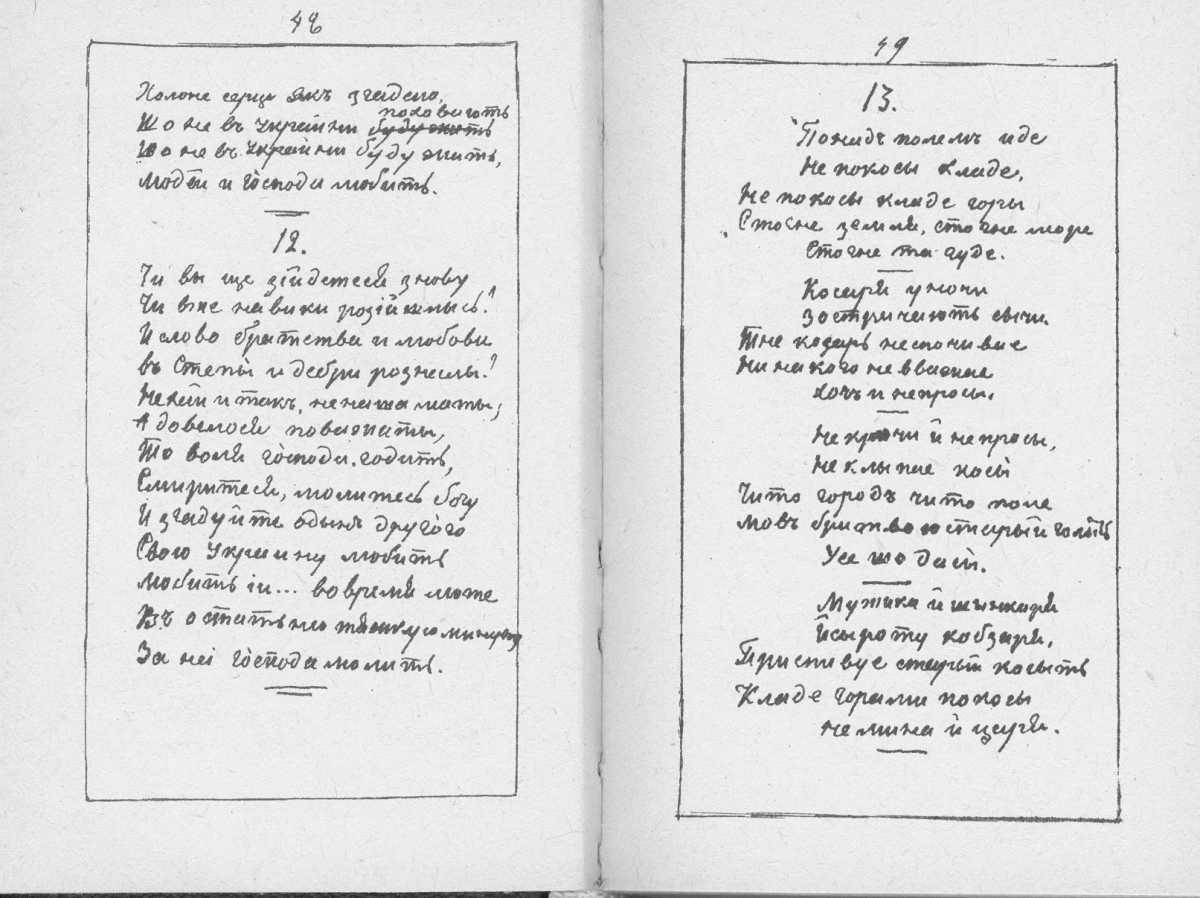 48
Холоне серце якъ згадаю,
поховають
Шо не въ Украйни будужить
Шо не въ Украйни буду жить,
Людей и Господа любить.
12.
Чи вы ще зійдетеся знову
Чи вже навики розійшлысь?
И слово братства и любови
въ степы и дебри рознеслы?
Нехай и такъ, ненаша маты,
А довелося поважаты,
То воля Господа. годить,
Смиритеся, молитесь богу
И згадуйте одынъ другого
Свою Украину любить
Любить іи... во время люте
Въ остатьню тяжкую минуту
За неі Господа молить.
49
13.
Понадъ полемъ иде
Не покосы кладе,
Не покосы кладе горы
Стогне земля, стогне море
Стогне та гуде.
Косаря уночи
Зострічають сычи.
Тне косарь неспочивае
Ни на кого невважае
Хочъ и непросы.
Не крычи й непросы,
Не клыпае косы
Чито городъ чито поле
Мовъ бритвою старый голыть
Усе шо дасы.
Мужика й шынкаря
Йсыроту кобзаря,
Приспивуе старый косыть
Кладе горами покосы
Не мина й царя.